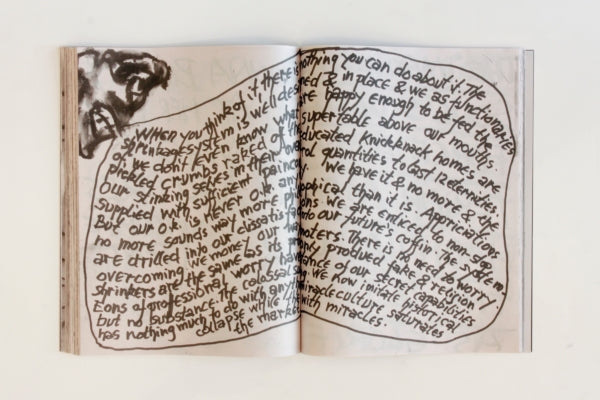 When you think of it there is nothing you can do about it. The
shrinkage system is well designed & in place & we as functionaries
of it we don't even know what are happy enough to be fed the
pickled crumbs raked off the supertable above our mouths.
Our stinking selves in their over educated Knickknack homes are
supplied with sufficient quantities to last 12 eternities.
But our o.k. is never o.k. any We have it & no more & the
no more sounds way more philosophical than it is. Appriciations
are drilled into our dissatisfactions. We are enticed to non-stop
overcoming. We money our way into our future's coffin. The system
shrinkers are the same as its promoters. There is no need to worry
Tons of professional worry have produced fake & revision
but no substance. The colossal of our secret capabilities
has nothing much to do with anything. We now imitate historical
collapse while the miracle culture saturates
the market with miracles.